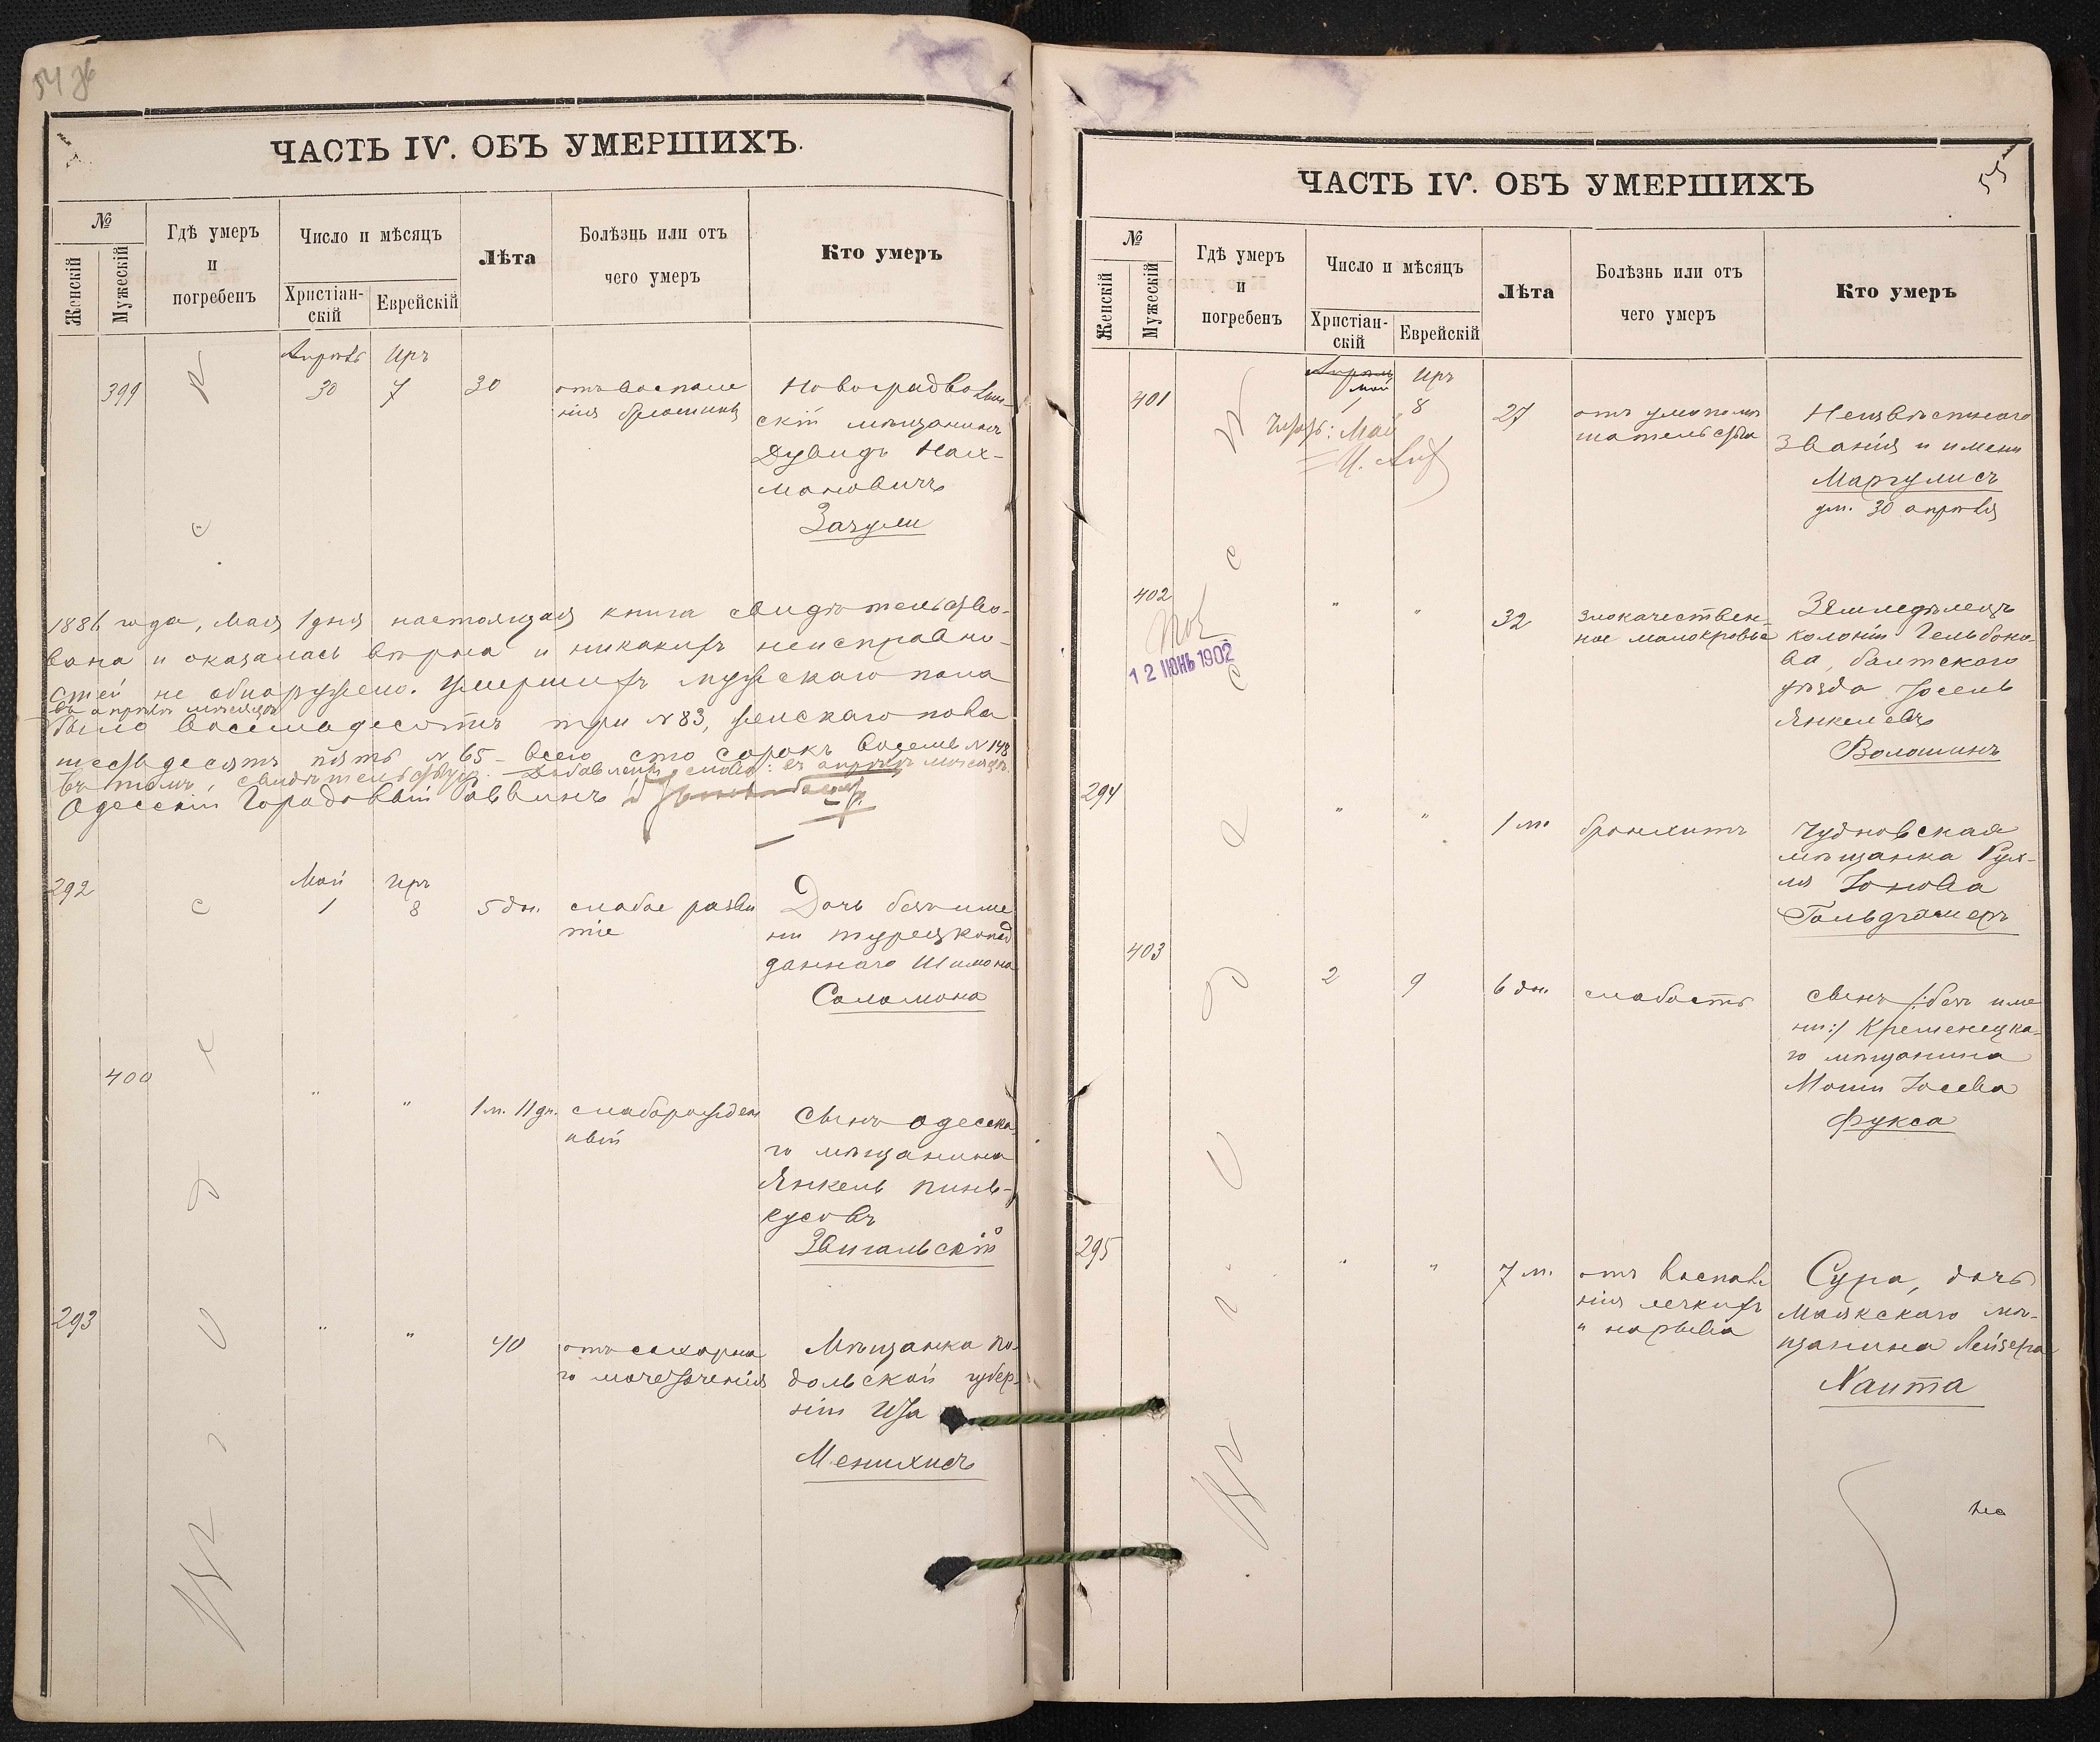 54 об
ЧАСТЬ IV. ОБЪ УМЕРШИХЪ.
№
Женскій
Мужескій
Гдѣ умеръ
и
погребенъ
Число и мѣсяцъ
Христіан-
скій
Еврейскій
Лѣта
Болѣзнь или отъ
чего умеръ
Кто умеръ
Апрѣль Иръ
399 30 7 30
отъ воспале
нія брюшины
Новоградволын-
скій мѣщанинъ
Дувидъ Нах-
мановичъ
Зачули
1886 года, мая 1 дня настоящая книга свидѣтельство-
вана и оказалась вѣрна и никакихъ неисправно-
стей не обнаружено. Умершихъ мужскаго пола
въ апрѣлѣ мѣсяцѣ
было восемьдесятъ три № 83, женскаго пола
шестьдесятъ пять № 65 – всего сто сорокъ восемь № 148
въ томъ, свидѣтельствую. Добавленныя слова: въ апрѣлѣ мѣсяцѣ.
Одесскій Городовый Раввинъ
292
Май Иръ
1 8 5 дн.
слабое разви
тіе
Дочь безъ име
ни турецкопод
даннаго Шимона
Соломона
400 " " 1 м. 11 дн.
слаборожден
ный
Сынъ одесска-
го мѣщанина
Янкель Пинь-
кусовъ
Звигальскій
293 " " 40
отъ сахарна
го мочетеченія
Мѣщанка По-
дольской губер-
ніи Ита
Менихисъ
55
ЧАСТЬ IV. ОБЪ УМЕРШИХЪ
№
Женскій
Мужескій
Гдѣ умеръ
и
погребенъ
Число и мѣсяцъ
Христіан-
скій
Еврейскій
Лѣта
Болѣзнь или отъ
чего умеръ
Кто умеръ
Апрѣль Иръ
май
401 1 8 27
Май
отъ умопомѣ
шательства
Неизвѣстнаго
званія и имени
Маргулисъ
ум. 30 апрѣля
402 " " 32
12 ІЮНЬ 1902
злокачествен-
ное малокровье
Земледѣлецъ
колоніи Гельбоно-
ва, балтскаго
уѣзда Іосель
Янкелевъ
Волошинъ
294 " " 1 м.
бронхитъ
Чудновская
мѣщанка Рух-
ля Іонова
Гольдгамеръ
403 2 9 6 дн.
слабость
сынъ /:безъ име
ни:/ Кременецка-
го мѣщанина
Мошки Іосева
Фукса
295 " " 7 м.
отъ воспале
нія легкихъ
и нарыва
Сура, дочь
Маякскаго мѣ-
щанина Лейзера
Хаита